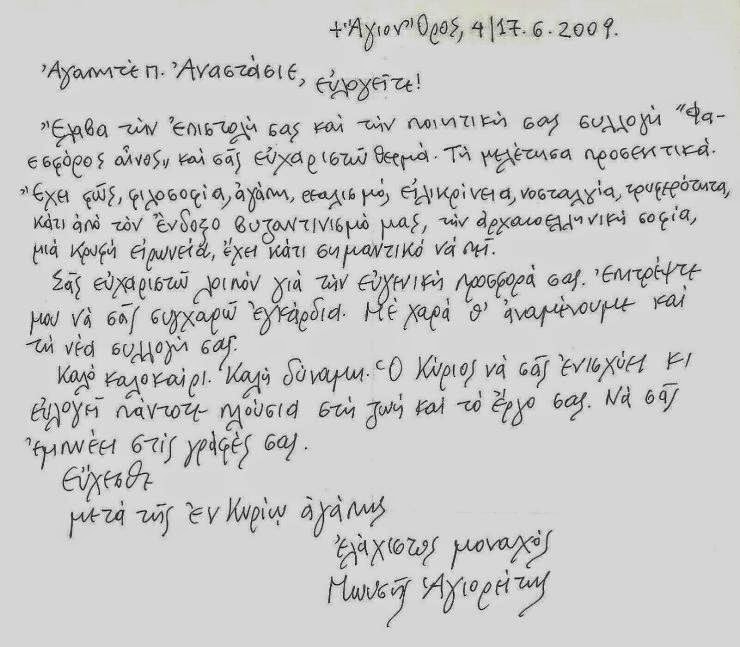 + Ἅγιον Ὄρος, 4/17.6.2009.
Ἀγαπητὲ π. Ἀναστάσιε, εὐλογεῖτε!
Ἔλαβα τὴν ἐπιστολή σας καὶ τὴν ποιητική σας συλλογὴ "Φα-
εσφόρος αἶνος" καὶ σᾶς εὐχαριστῶ θερμά. Τὴ μελέτησα προσεκτικά.
Ἔχει φῶς, φιλοσοφία, ἀγάπη, ρεαλισμό, εἰλικρίνεια, νοσταλγία, τρυφερότητα,
κάτι ἀπὸ τὸν ἔνδοξο βυζαντινισμὸ μας, τὴν ἀρχαιοελληνικὴ σοφία,
μιὰ κρυφὴ εἰρωνεία, ἔχει κάτι σημαντικὸ νὰ πῆ.
Σᾶς εὐχαριστῶ λοιπὸν γιὰ τὴν εὐγενικὴ προσφορά σας. Ἐπιτρέψτε
μου νὰ σᾶς συγχαρῶ ἐγκάρδια. Μὲ χαρὰ θ' ἀναμένουμε καὶ
τὴ νέα συλλογή σας.
Καλὸ καλοκαίρι. Καλὴ δύναμη. Ὁ Κύριος νὰ σᾶς ἐνισχύει κι
εὐλογεῖ πάντοτε πλούσια στὴ ζωὴ καὶ τὸ ἔργο σας. Νὰ σᾶς
ἐμπνέει στὶς γραφές σας.
Εὔχεσθε
μετὰ τῆς ἐν Κυρίῳ ἀγάπης
ἐλάχιστος μοναχὸς
Μωυσῆς Ἁγιορείτης